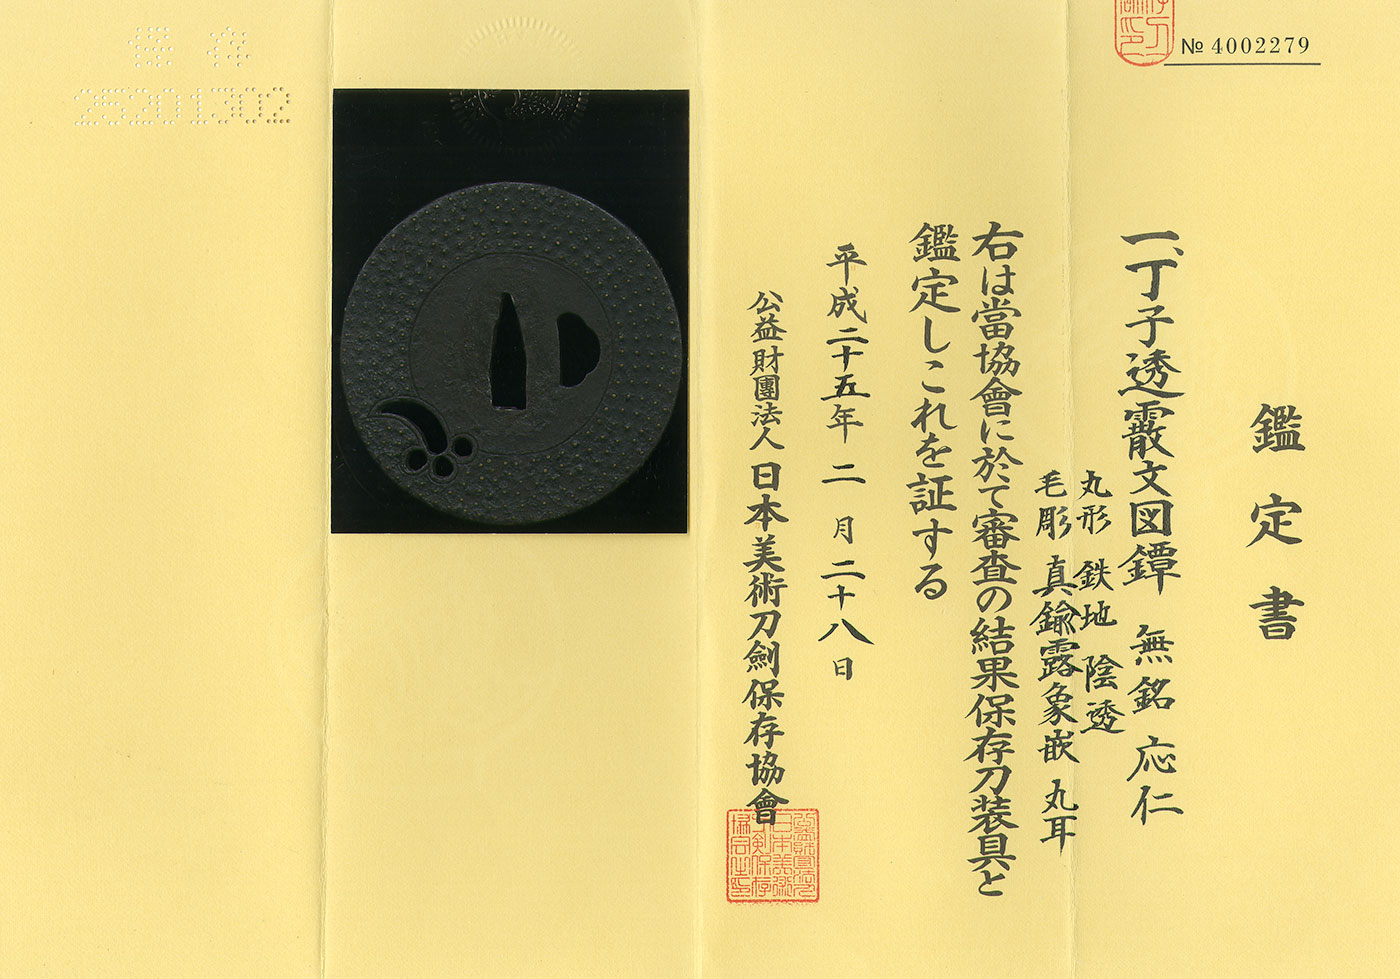 № 4002279
鑑定書
一、丁子透霰文図鐔　無銘　応仁
丸形　鉄地　陰透
毛彫　真鍮露象嵌　丸耳
右は當協會に於て審査の結果保存刀装具と
鑑定しこれを証する
平成二十五年 二 月 二十八日
公益財團法人 日本美術刀劍保存協會
保存
25201302